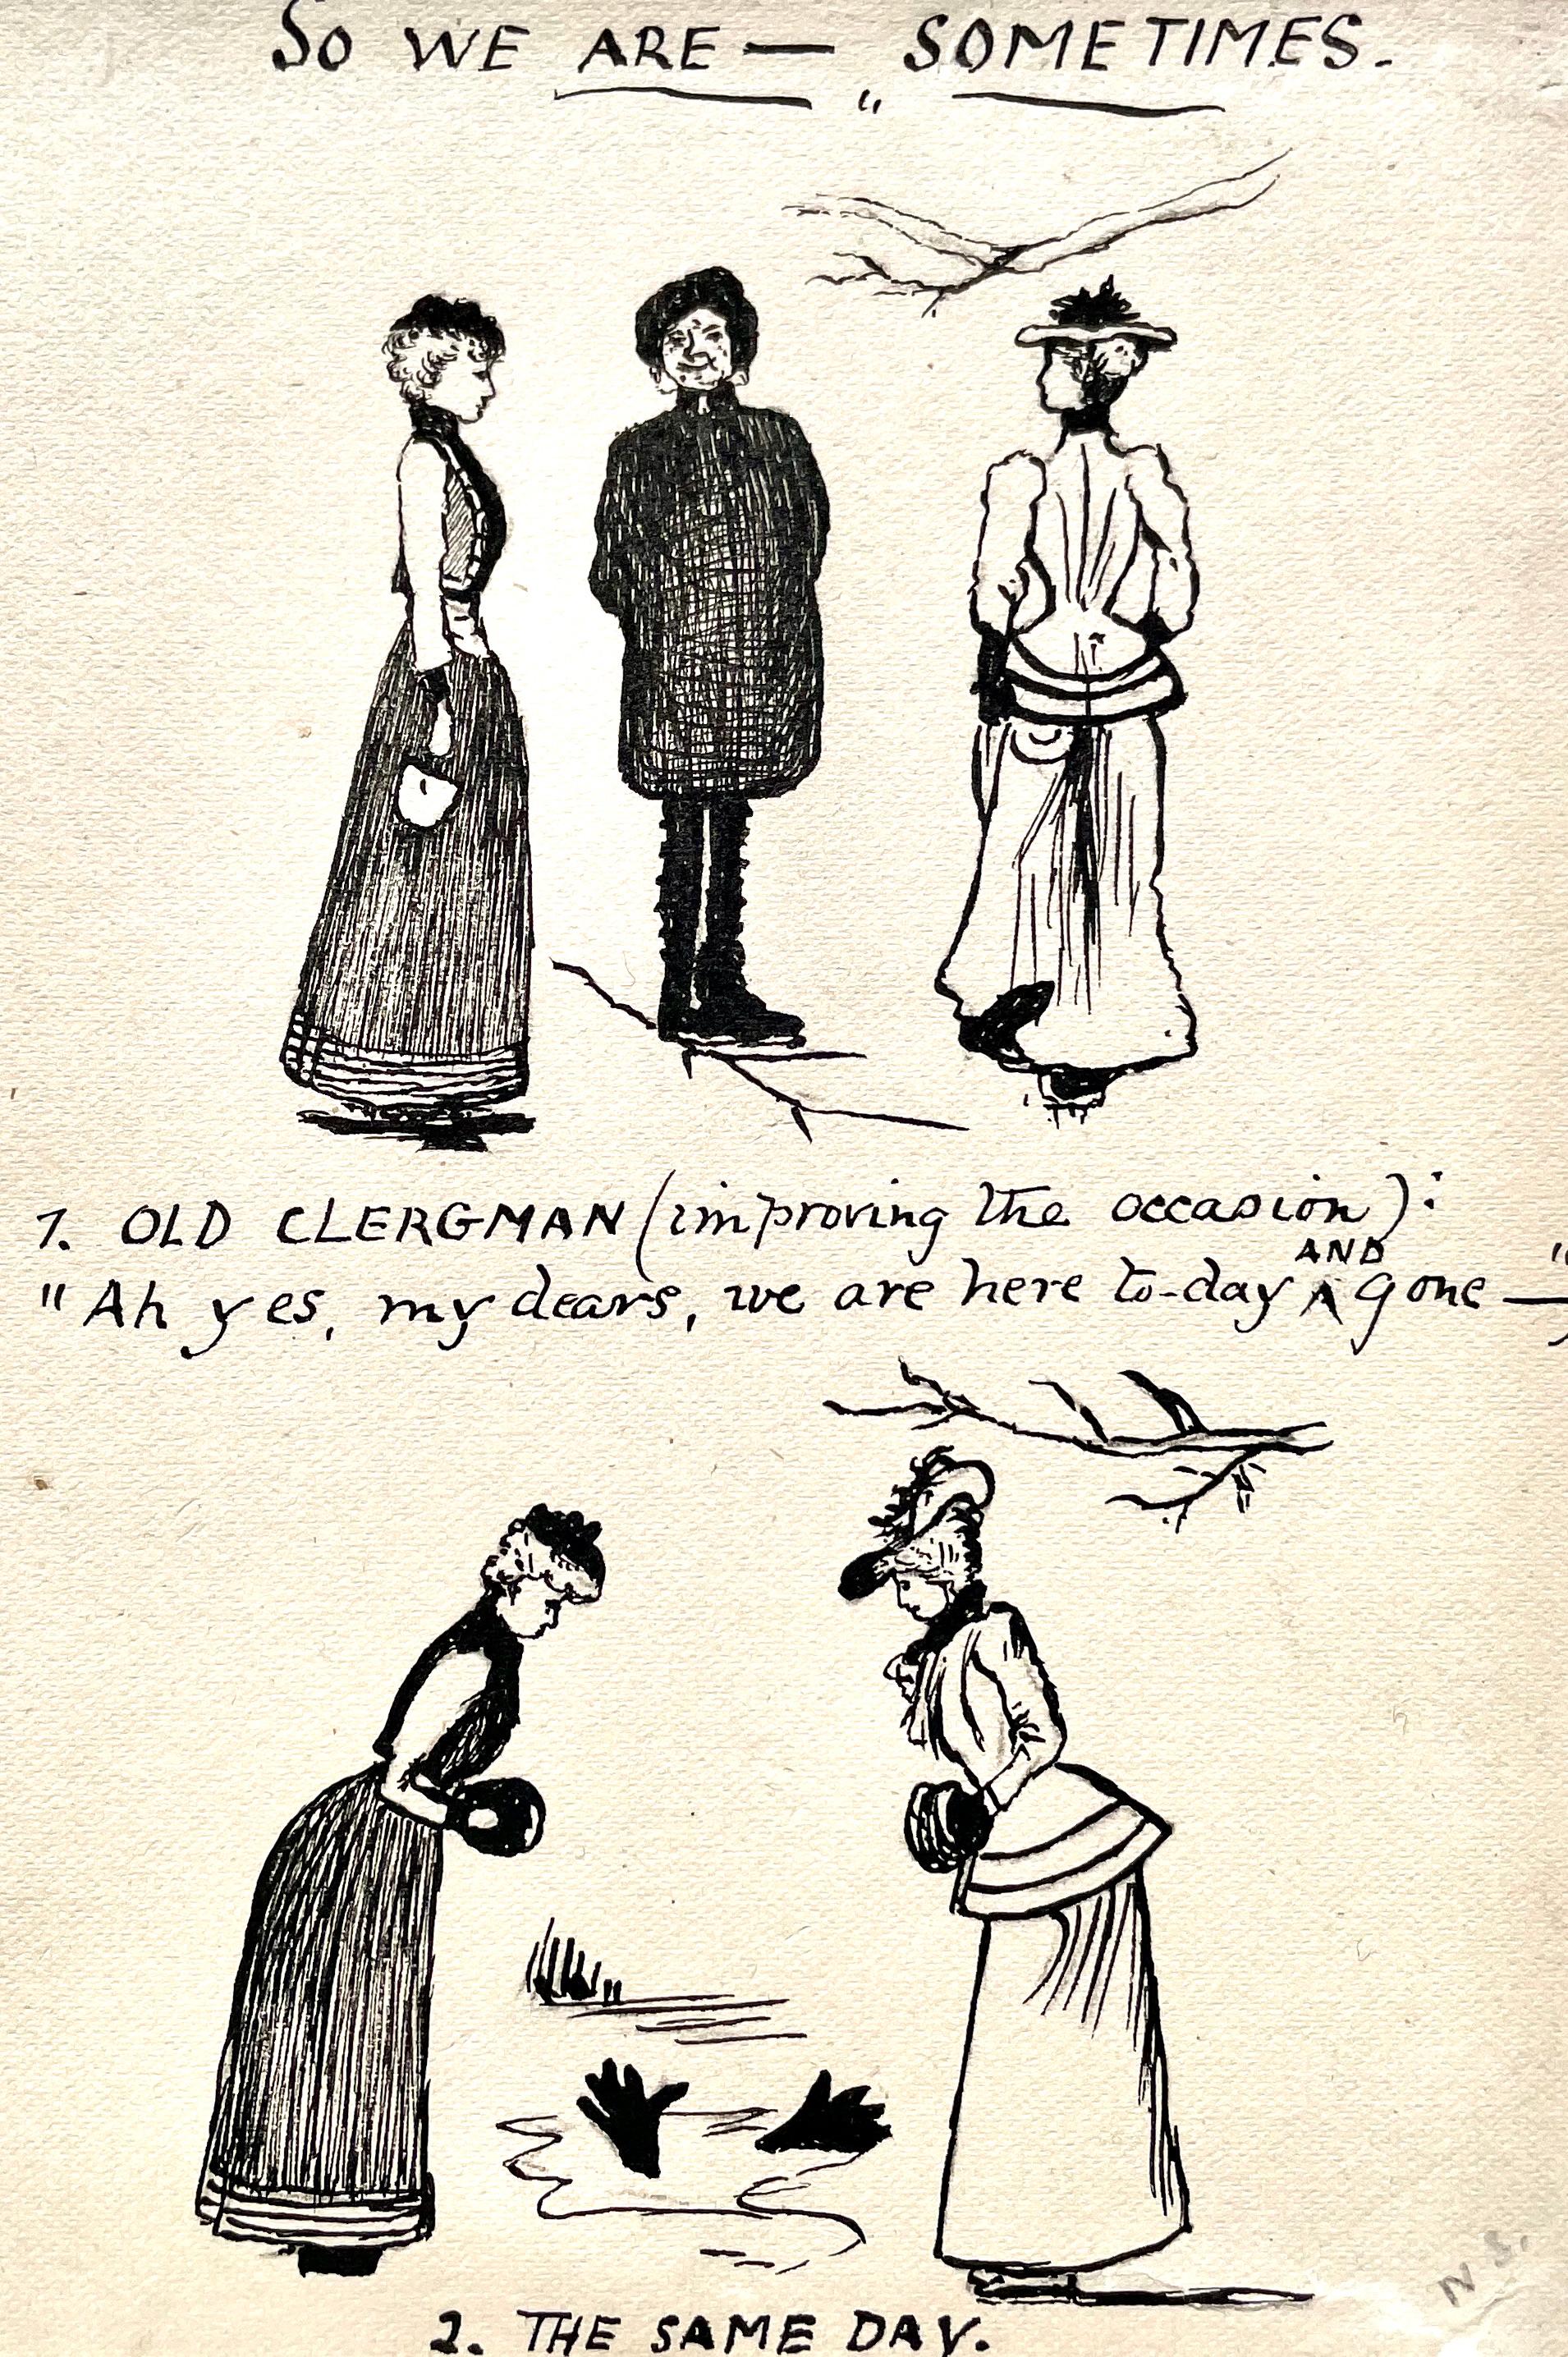 SO WE ARE — SOMETIMES.
1. OLD CLERGMAN (improving the occasion):
AND
"Ah yes, my dears, we are here to-day gone —"
N.S.
2. THE SAME DAY.